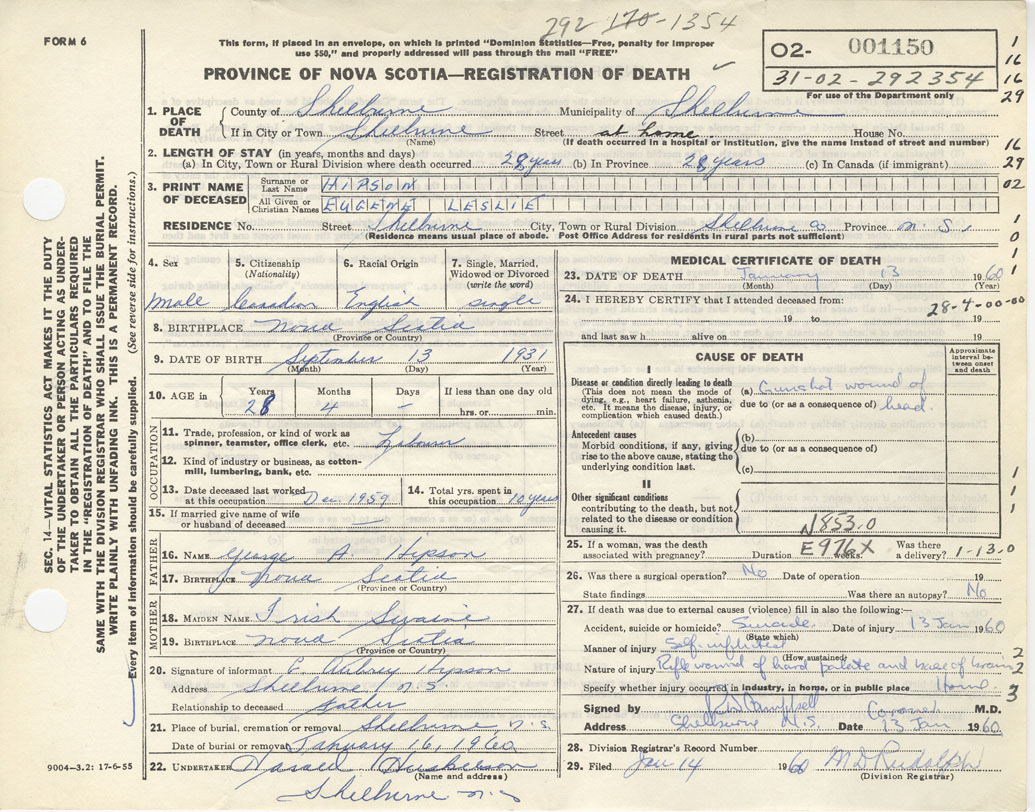 292 170-1354
FORM 6
This form, if placed in an envelope, on which is printed "Dominion Statistics—Free, penalty for improper
use $50," and properly addressed will pass through the mail "FREE"
PROVINCE OF NOVA SCOTIA—REGISTRATION OF DEATH
02- 001150
31-02-292354
For use of the Department only
1
16
16
29
16
29
02
1
0
1
1
1. PLACE OF DEATH
County of Shelburne Municipality of Shelburne
If in City or Town Shelburne Street at home House No.
(Name) (If death occurred in a hospital or institution, give the name instead of street and number)
2. LENGTH OF STAY (in years, months and days)
(a) In City, Town or Rural Division where death occurred 28 years (b) In Province 28 years (c) In Canada (if immigrant)
3. PRINT NAME OF DECEASED
Surname or Last Name HIPSON
All Given or Christian Names EUGENE LESLIE
RESIDENCE No. Street Shelburne City, Town or Rural Division Shelburne Co Province N. S.
(Residence means usual place of abode. Post Office Address for residents in rural parts not sufficient)
4. Sex
male
5. Citizenship
(Nationality)
Canadian
6. Racial Origin
English
7. Single, Married, Widowed or Divorced
(write the word)
single
8. BIRTHPLACE Nova Scotia
(Province or Country)
9. DATE OF BIRTH September 13 1931
(Month) (Day) (Year)
10. AGE in
Years 28
Months 4
Days –
If less than one day old
hrs. or min.
OCCUPATION
11. Trade, profession, or kind of work as
spinner, teamster, office clerk, etc.
12. Kind of industry or business, as cotton-
mill, lumbering, bank, etc.
13. Date deceased last worked
at this occupation Dec. 1959
14. Total yrs. spent in
this occupation 10 years
15. If married give name of wife
or husband of deceased —
FATHER
16. NAME George A. Hipson
17. BIRTHPLACE Nova Scotia
(Province or Country)
MOTHER
18. MAIDEN NAME Swaine
19. BIRTHPLACE Nova Scotia
(Province or Country)
20. Signature of informant Hipson
Address Shelburne N.S.
Relationship to deceased Father
21. Place of burial, cremation or removal Shelburne N.S.
Date of burial or removal January 16, 1960
22. UNDERTAKER
(Name and address)
Shelburne N.S.
MEDICAL CERTIFICATE OF DEATH
23. DATE OF DEATH January 13 1960
(Month) (Day) (Year)
28-4-00-00
24. I HEREBY CERTIFY that I attended deceased from:
19 to 19
and last saw h alive on 19
CAUSE OF DEATH
Approximate interval between onset and death
I
Disease or condition directly leading to death
(This does not mean the mode of
dying, e.g., heart failure, asthenia,
etc. It means the disease, injury, or
complication which caused death.)
(a) Gunshot wound of
due to (or as a consequence of) head.
Antecedent causes
Morbid conditions, if any, giving
rise to the above cause, stating the
underlying condition last.
(b)
due to (or as a consequence of)
(c)
II
Other significant conditions
contributing to the death, but not
related to the disease or condition
causing it.
N853.0
E976X
1
1
1
25. If a woman, was the death
associated with pregnancy? Duration weeks. Was there
a delivery? 1-13-0
26. Was there a surgical operation? No Date of operation 19
State findings Was there an autopsy? No
27. If death was due to external causes (violence) fill in also the following:—
Accident, suicide or homicide? Suicide Date of injury 13 Jan 1960
(State which)
Manner of injury Self-inflicted 2
(How sustained)
Nature of injury Rifle wound of hard palate and base of brain 2
Specify whether injury occurred in industry, in home, or in public place Home 3
Signed by Campbell Coroner M.D.
Address Shelburne N.S. Date 13 Jan 1960
28. Division Registrar's Record Number
29. Filed Jan 14 1960 M D Rudolph
(Division Registrar)
SEC. 14—VITAL STATISTICS ACT MAKES IT THE DUTY
OF THE UNDERTAKER OR PERSON ACTING AS UNDER-
TAKER TO OBTAIN ALL THE PARTICULARS REQUIRED
IN THE "REGISTRATION OF DEATH" AND TO FILE THE
SAME WITH THE DIVISION REGISTRAR WHO SHALL ISSUE THE BURIAL PERMIT.
WRITE PLAINLY WITH UNFADING INK. THIS IS A PERMANENT RECORD.
Every item of information should be carefully supplied. (See reverse side for instructions.)
9004-3.2: 17-6-55